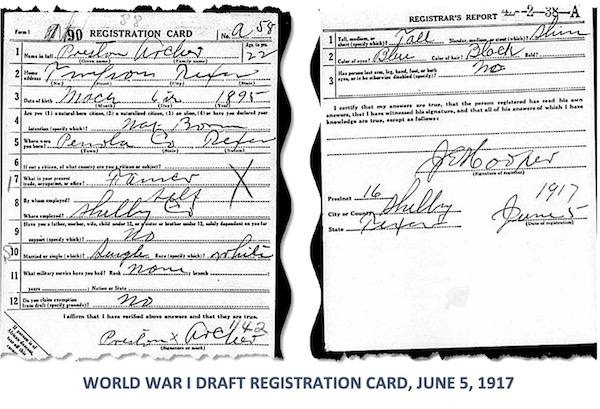 Form 1
90
38
REGISTRATION CARD
No. a 58
1 Name in full Preston Archer
Age, in yrs. 22
(Given name) (Family name)
2 Home address Timpson Texas
(No.) (Street) (City) (State)
3 Date of birth 6 1895
(Month) (Day) (Year)
4 Are you (1) a natural-born citizen, (2) a naturalized citizen, (3) an alien, (4) or have you declared your
intention (specify which)? Nat Born
5 Where were you born? Penola Co Texas
(Town) (State) (Nation)
6 If not a citizen, of what country are you a citizen or subject?
7 What is your present trade, occupation, or office? Farmer
8 By whom employed? Self
Where employed? Shelby Co
9 Have you a father, mother, wife, child under 12, or a sister or brother under 12, solely dependent on you for
support (specify which)? No
10 Married or single (which)? Single Race (specify which)? White
11 What military service have you had? Rank None; branch
years; Nation or State
12 Do you claim exemption from draft (specify grounds)? No
I affirm that I have verified above answers and that they are true.
1142
Preston x Archer
(Signature or mark)
REGISTRAR'S REPORT 42-2-38-A
1 Tall, medium, or short (specify which)? Tall Slender, medium, or stout (which)? Slim
2 Color of eyes? Blue Color of hair? Black Bald?
3 Has person lost arm, leg, hand, foot, or both eyes, or is he otherwise disabled (specify)? No
I certify that my answers are true, that the person registered has read his own
answers, that I have witnessed his signature, and that all of his answers of which I have
knowledge are true, except as follows:
J E Cooper
(Signature of registrar)
Precinct 16
City or County Shelby
State Texas
1917
June 5
(Date of registration)
WORLD WAR I DRAFT REGISTRATION CARD, JUNE 5, 1917